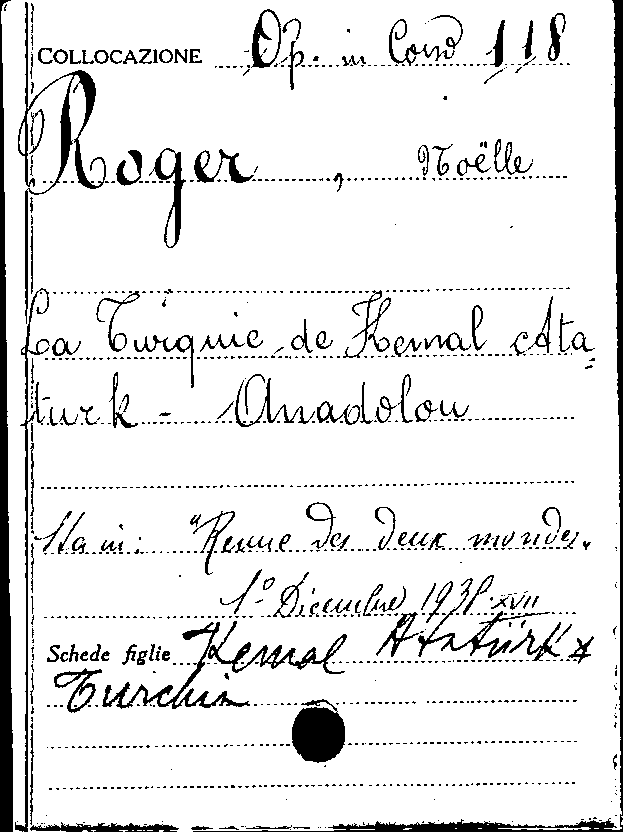 COLLOCAZIONE Op. in Cond 118
Roger, Noëlle
La Turquie de Kemal Ata=
turk - Anadolou
Sta in: "Revue des deux mondes.
1º Dicembre 1938. XVII
Schede figlie Kemal Atatürk *
Turchia